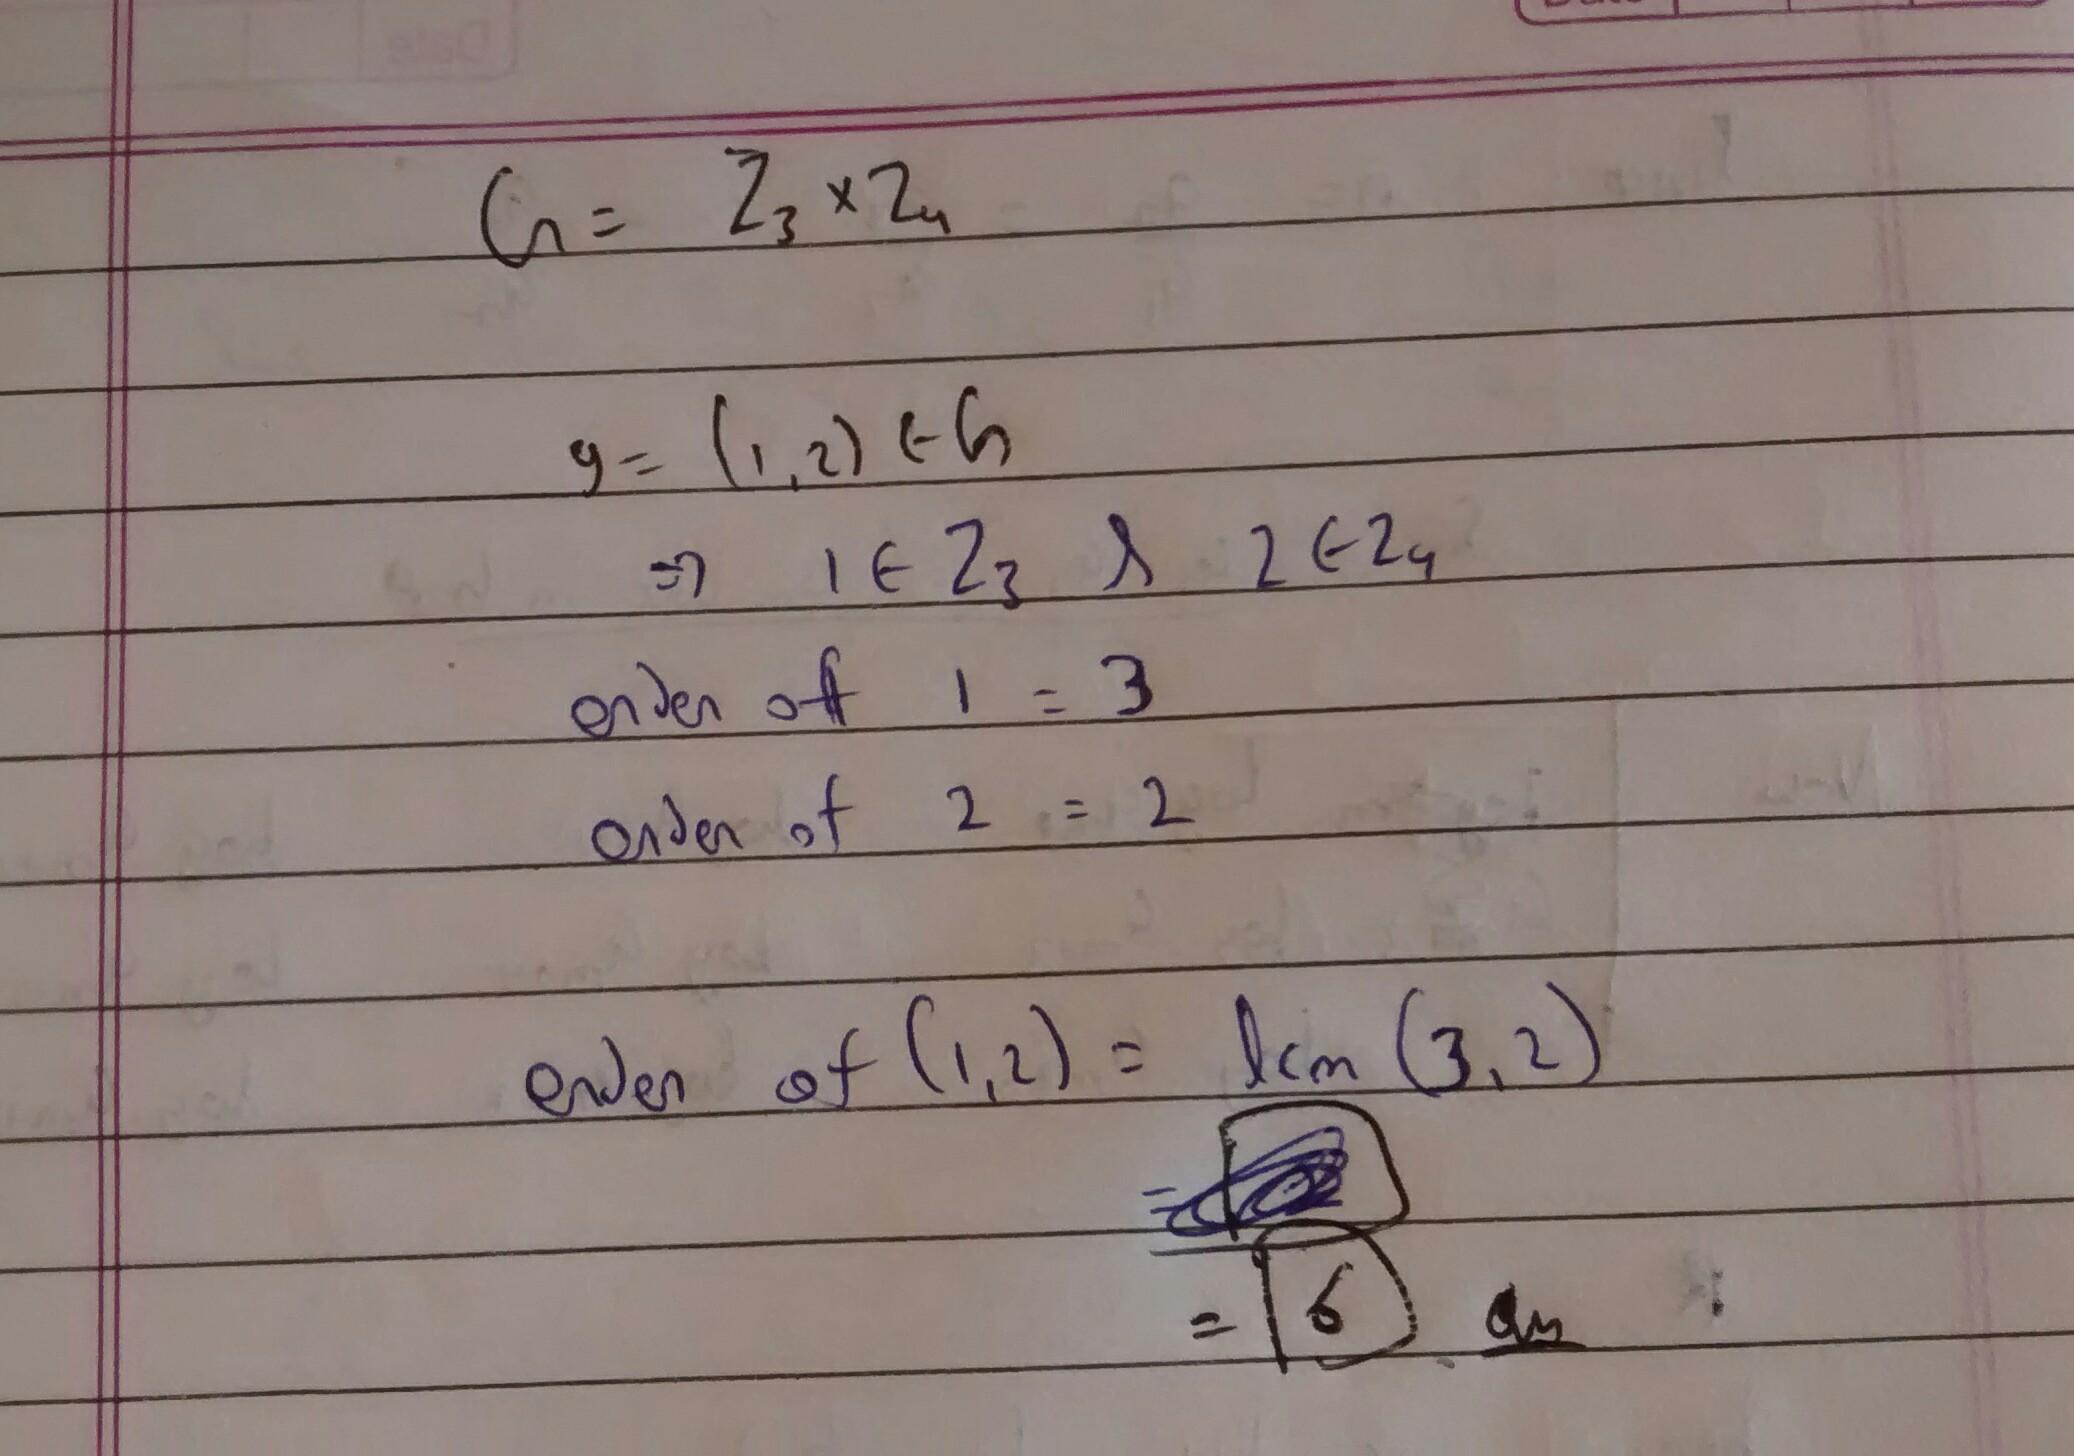 Date
G = Z₃ × Z₄
g = (1,2) ∈ G
⇒ 1 ∈ Z₃ & 2 ∈ Z₄
order of 1 = 3
order of 2 = 2
order of (1,2) = lcm (3,2)
=
= 6 Ans